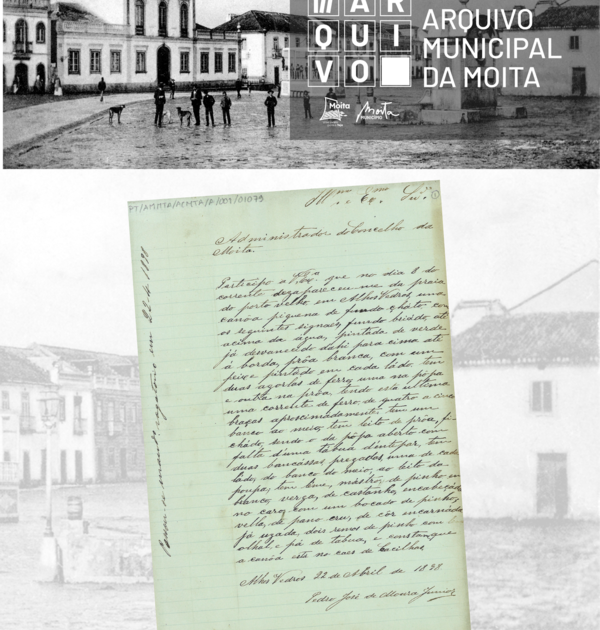 AR
QUI
VO
ARQUIVO
MUNICIPAL
DA MOITA
Moita
Moita
MUNICÍPIO
PT/AMMTA/ACMTA/A/001/01079
Illmo. e Exmo. Snr.
Administrador do Concelho da
Moita.
Participo a V. Exa. que no dia 8 do
corrente dezapareceu-me da praia
do porto velho em Alhos Vedros, uma
canoa piquena de fundo chato com
os seguintes signais, fundo briado, até
acima da agua, pintada de verde
já desvanecido dahi para cima até
á borda, prôa branca, com um
peixe pintado em cada lado, tem
duas argolas de ferro, uma na pôpa
e outra na prôa, tendo esta ultima
uma corrente de ferro de quatro a cinco
braças aprocimadamente, tem um
banco ao meio, tem leito de prôa, fi
chado, sendo o da pôpa aberto com
falta d'uma tabua d'intupar, tem
duas bancassas pregadas, uma de cada
lado, do banco do meio, ao leito da
poupa, tem leme, mastro, de pinho
branco, verga, de castanho, encabeçada
no caro, com um bocado de pinho,
vella, de pano cru, de côr encarnada
já uzada, dois remos de pinho com
olhal, e pá de tabua, e constam que
a canôa está no caes de Cacilhas
Alhos Vedros 22 de Abril de 1898
Pedro José de Moura Junior
em 22-4-1898